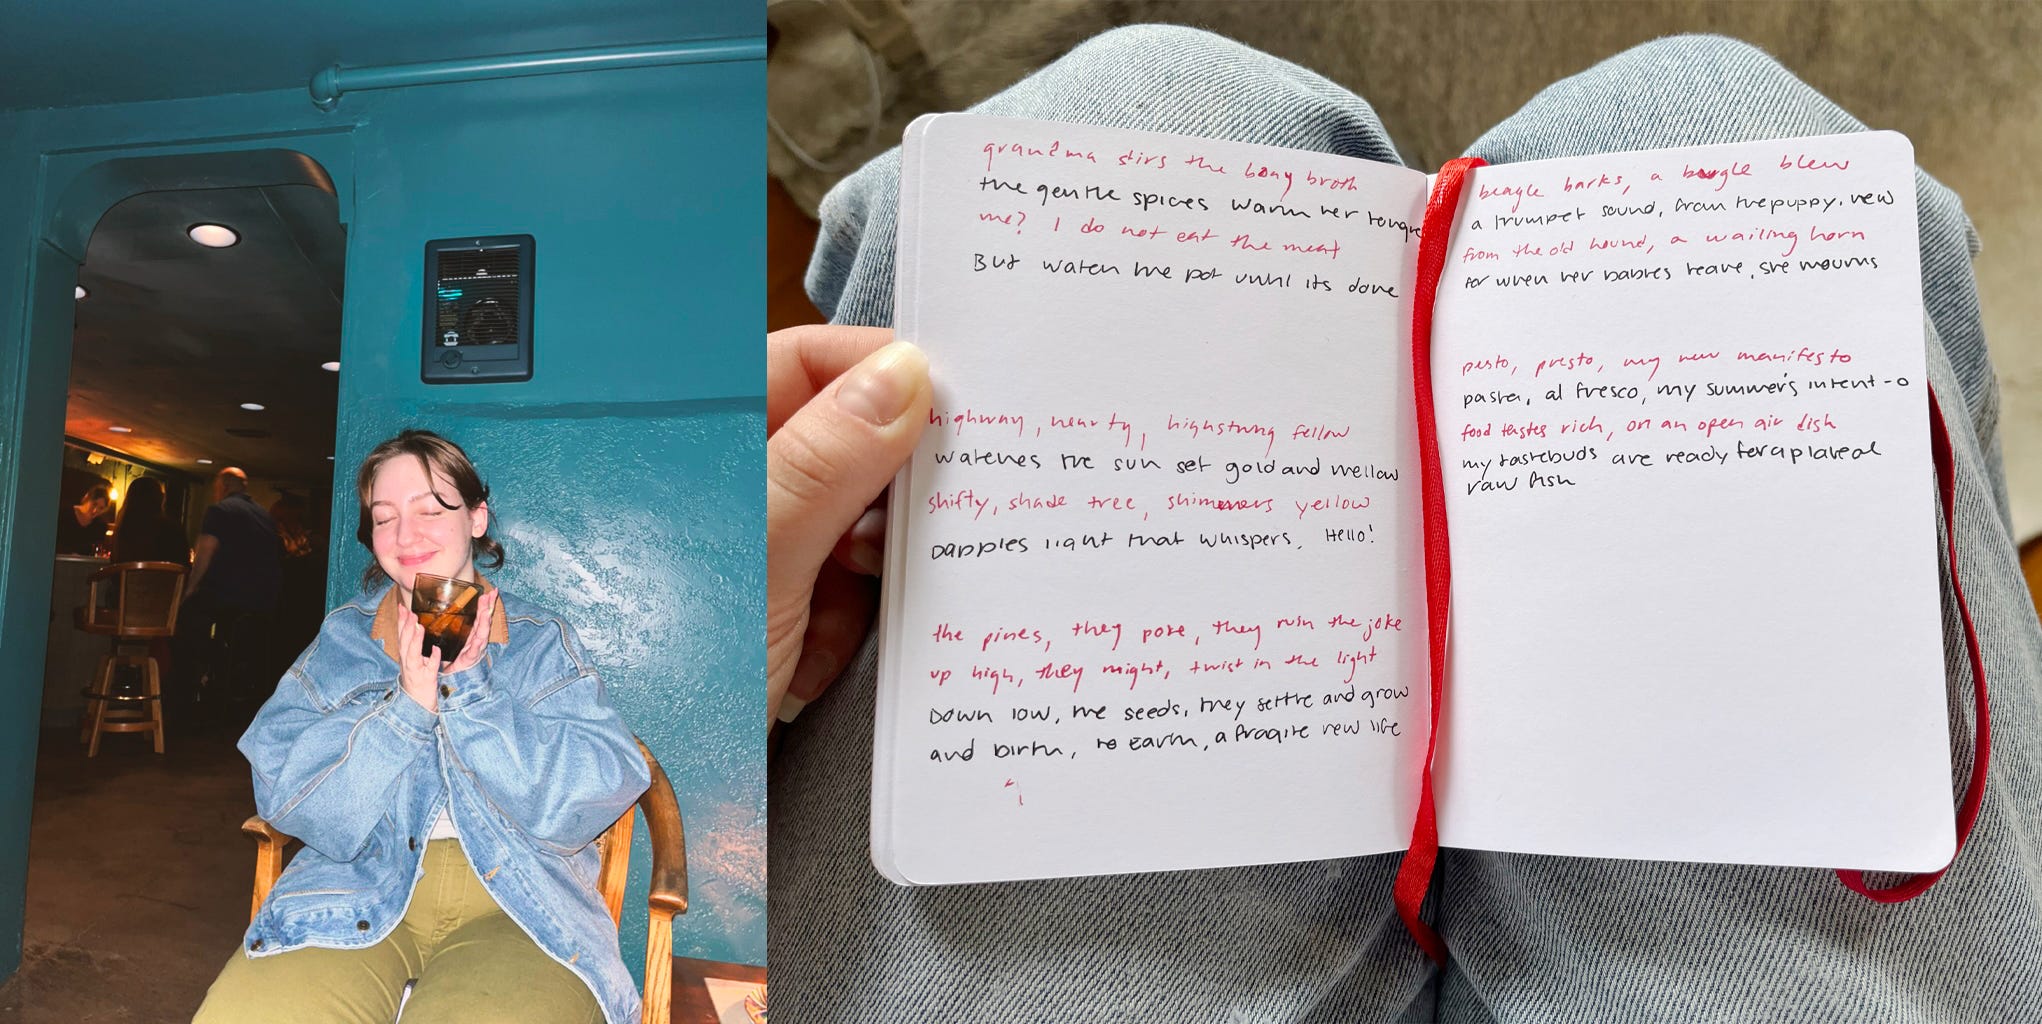 grandma stirs the bony broth
the gentle spices warm her tongue
me? I do not eat the meat
But watch the pot until its done
highway, hearty, highstrung fellow
watches the sun set gold and mellow
shifty, shade tree, shimmers yellow
Dapples light that whispers, Hello!
the pines, they poke, they rush the joke
up high, they might, twist in the light
Down low, the seeds, they settle and grow
and birth, to Earth, a fragile new life
beagle barks, a bugle blew
a trumpet sound, from the puppy, new
from the old hound, a wailing horn
for when her babies leave, she mourns
pesto, presto, my new manifesto
pasta, al fresco, my summer's intent-o
food tastes rich, on an open air dish
my tastebuds are ready for a plate of
raw fish